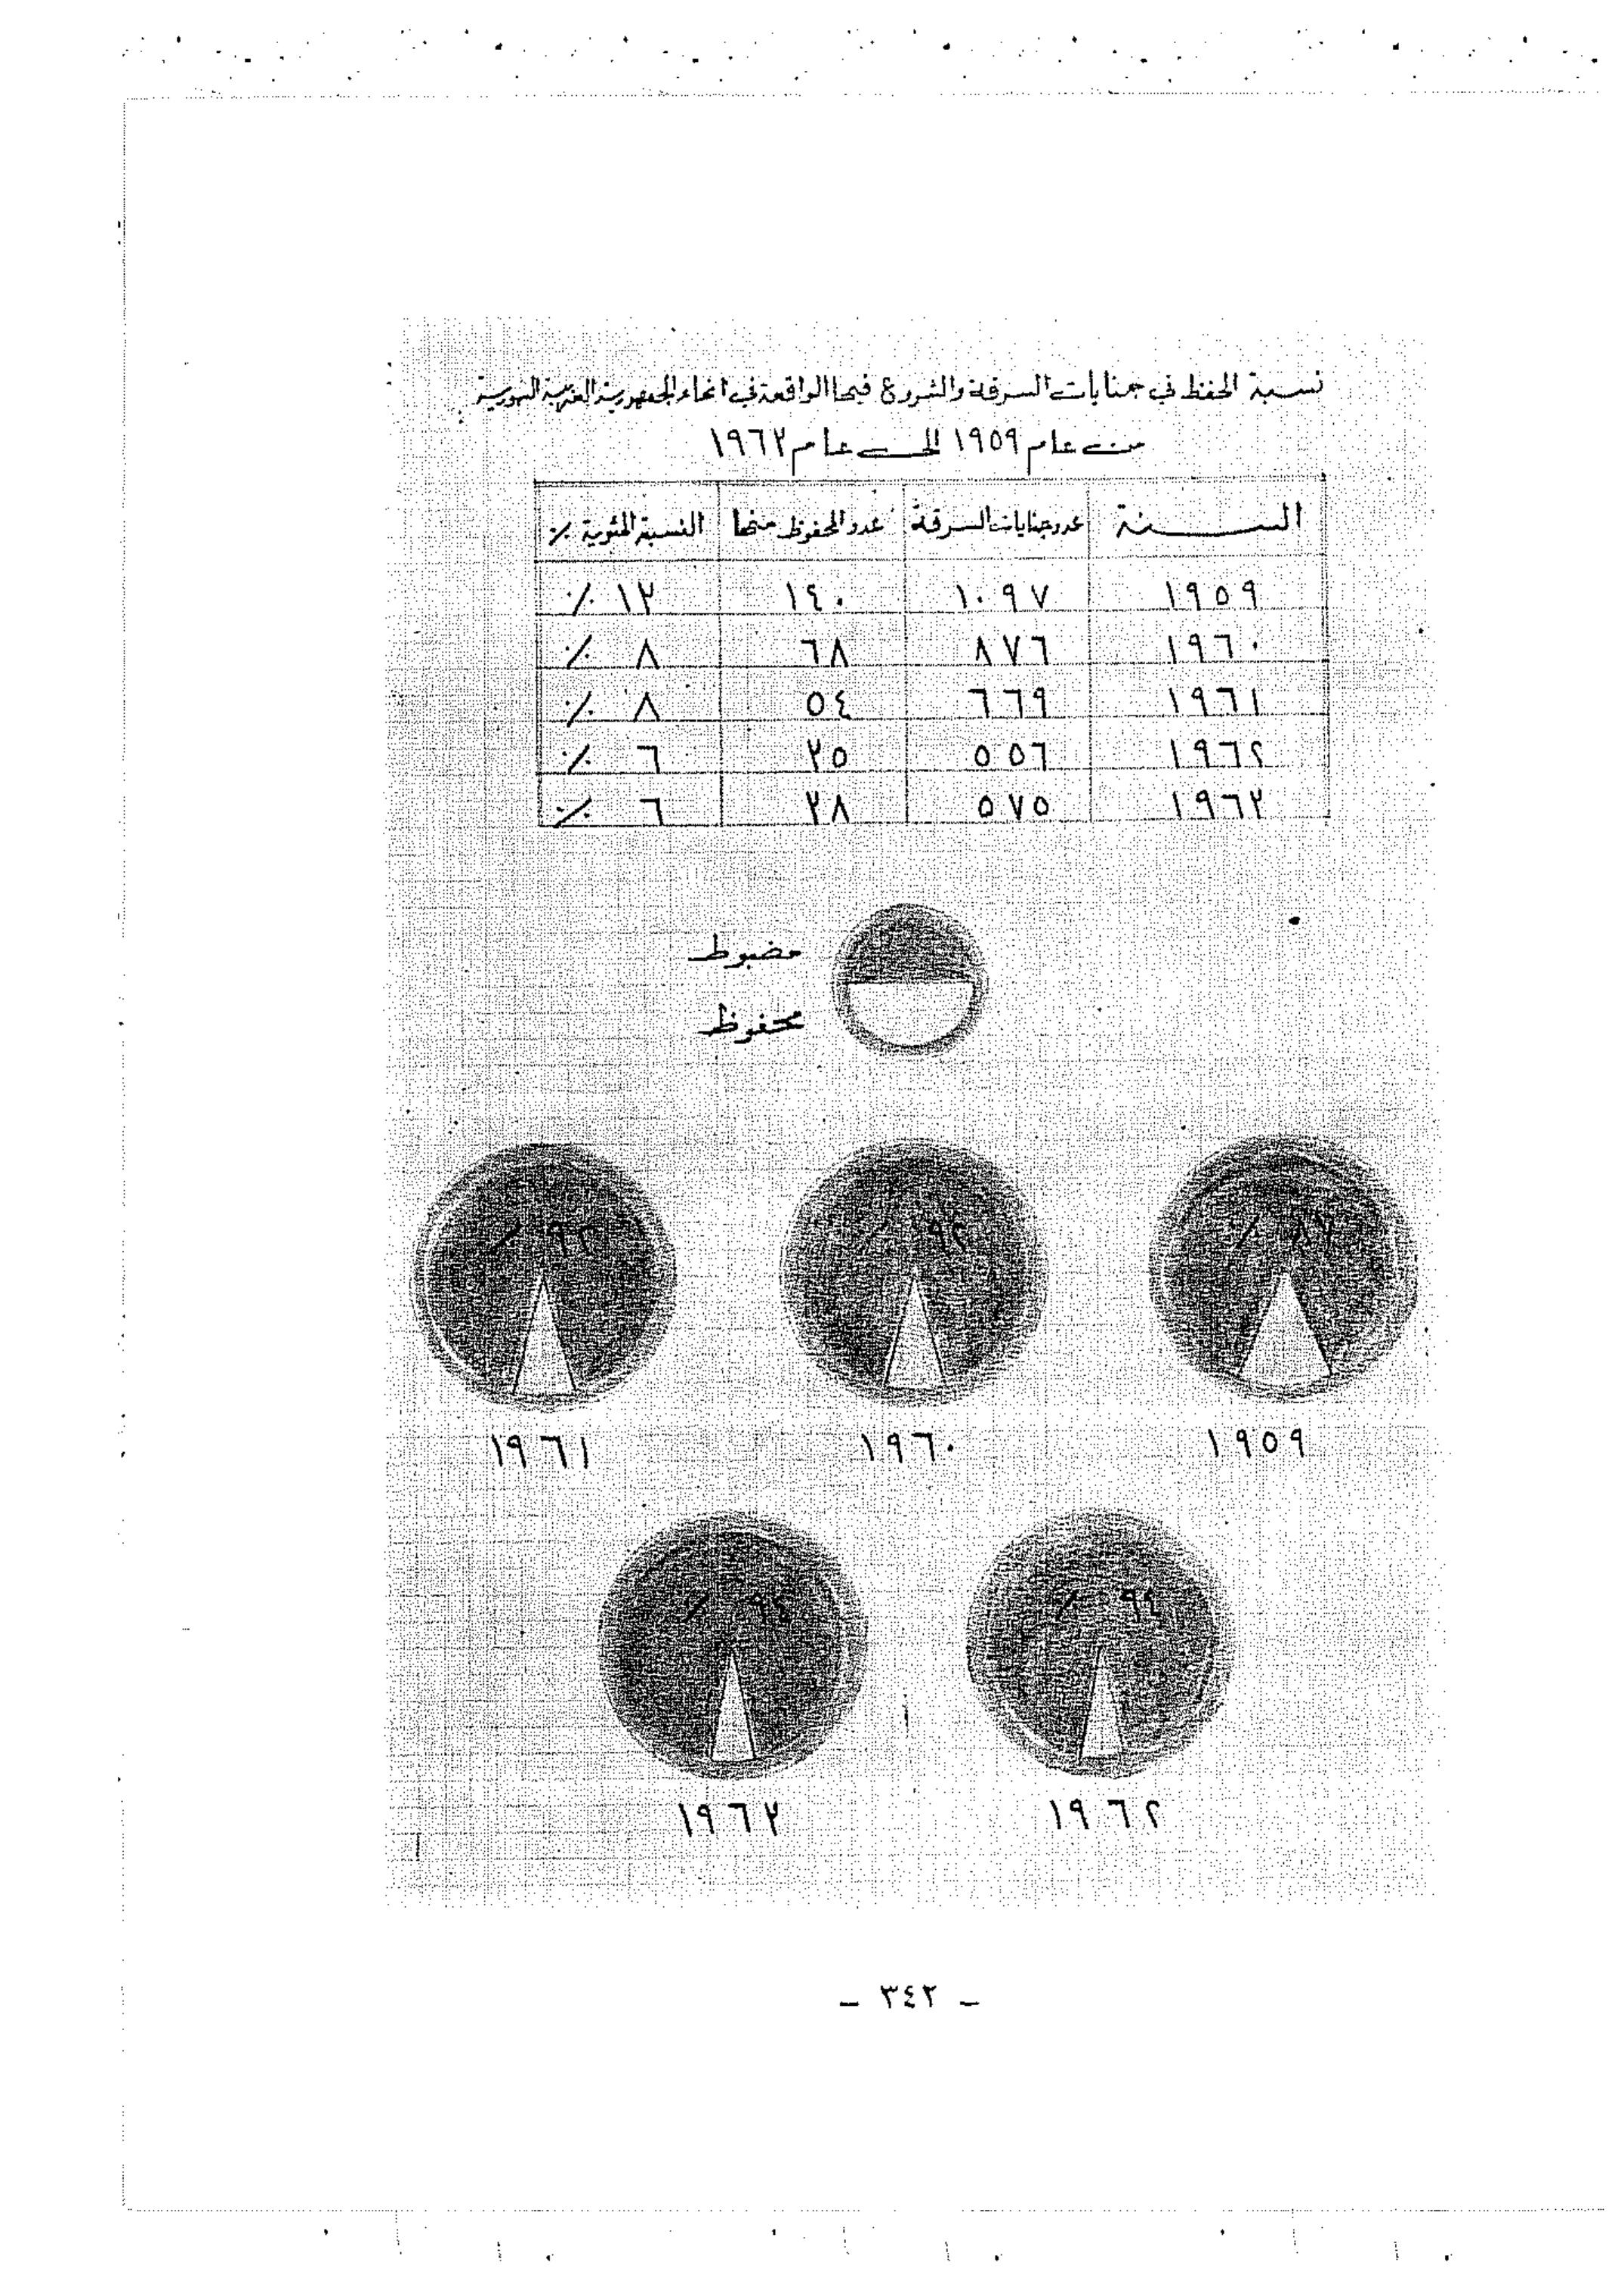 نسبة الحفظ في جنايات السرقة والشروع فيها الواقعة في انحاء الجمهورية العربية السورية
من عام ١٩٥٩ الى عام ١٩٦٣
السنة عدد جنايات السرقة عدد المحفوظ منها النسبة المئوية ٪
١٩٥٩ ١٠٩٧ ١٤٠ ١٣ ٪
١٩٦٠ ٨٧٦ ٦٨ ٨ ٪
١٩٦١ ٦٦٩ ٥٤ ٨ ٪
١٩٦٢ ٥٥٦ ٣٥ ٦ ٪
١٩٦٣ ٥٧٥ ٣٨ ٦ ٪
مضبوط
محفوظ
٨٧ ٪ ٩٢ ٪ ٩٢ ٪
١٩٥٩ ١٩٦٠ ١٩٦١
٩٤ ٪ ٩٤ ٪
١٩٦٢ ١٩٦٣
– ٣٤٢ –